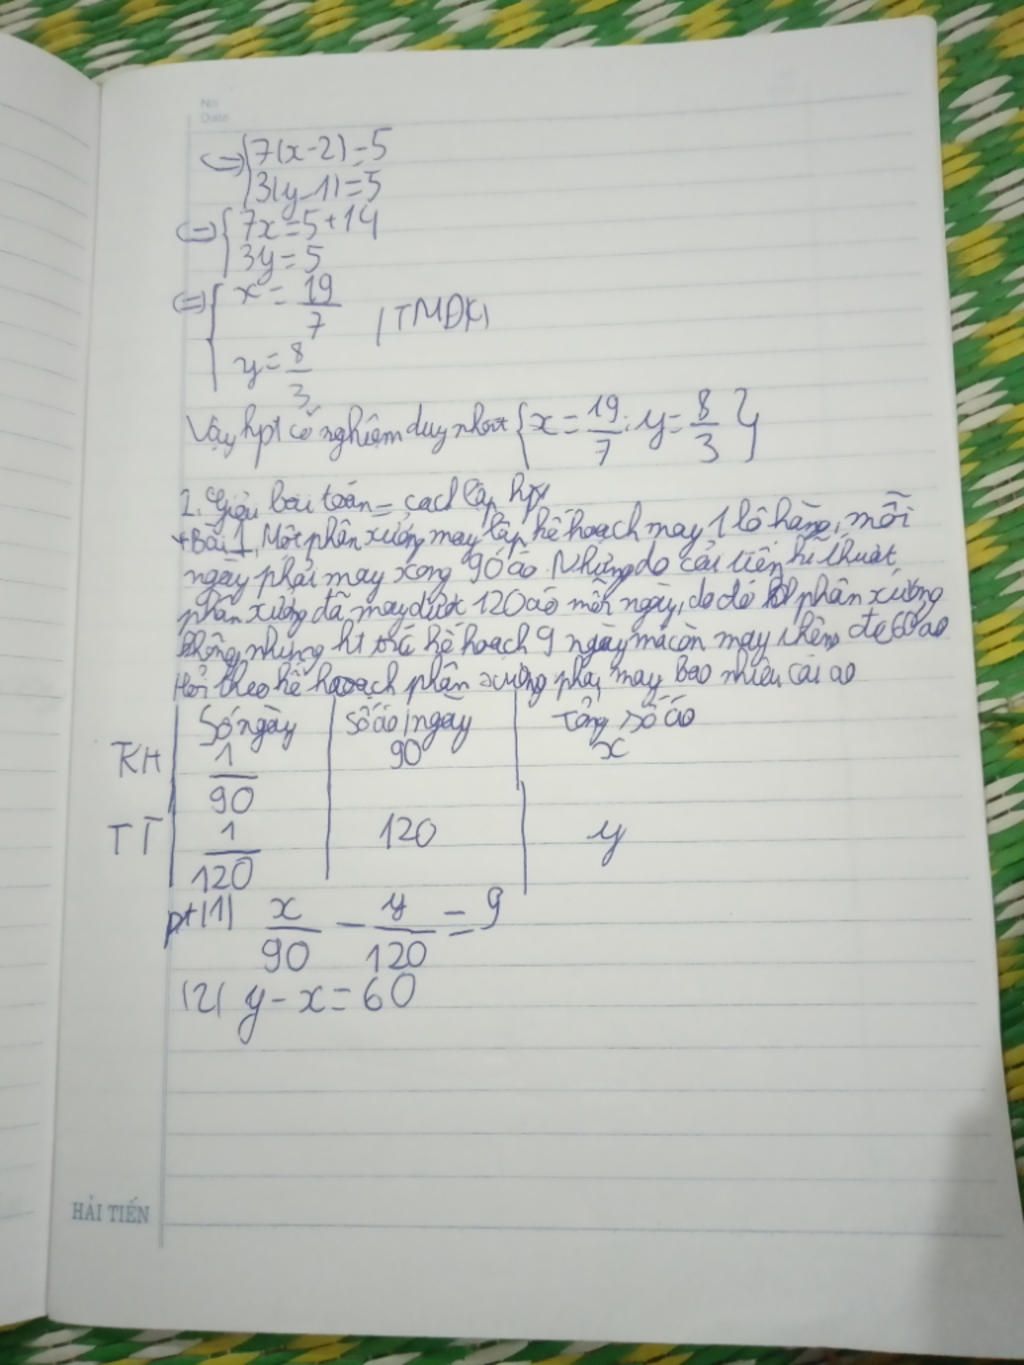 No
Date
<=> { 7(x-2) = 5
3(y-1) = 5
<=> { 7x = 5+14
3y = 5
<=> { x = 19/7 (TMĐK)
y = 8/3
Vậy hpt có nghiệm duy nhất { x = 19/7 ; y = 8/3 }
2. Giải bài toán = cách lập hpt
+ Bài 1, Một phân xưởng may lập kế hoạch may 1 lô hàng, mỗi
ngày phải may xong 90 áo. Nhưng do cải tiến kĩ thuật,
phân xưởng đã may được 120 áo mỗi ngày, do đó phân xưởng
không những ht trc kế hoạch 9 ngày mà còn may thêm 60 áo
Hỏi theo kế hoạch phân xưởng phải may bao nhiêu cái áo
Số ngày | Số áo/ngày | Tổng số áo
KH | 1/90 | 90 | x
TT | 1/120 | 120 | y
pt (1) x/90 - y/120 = 9
(2) y - x = 60
HẢI TIẾN